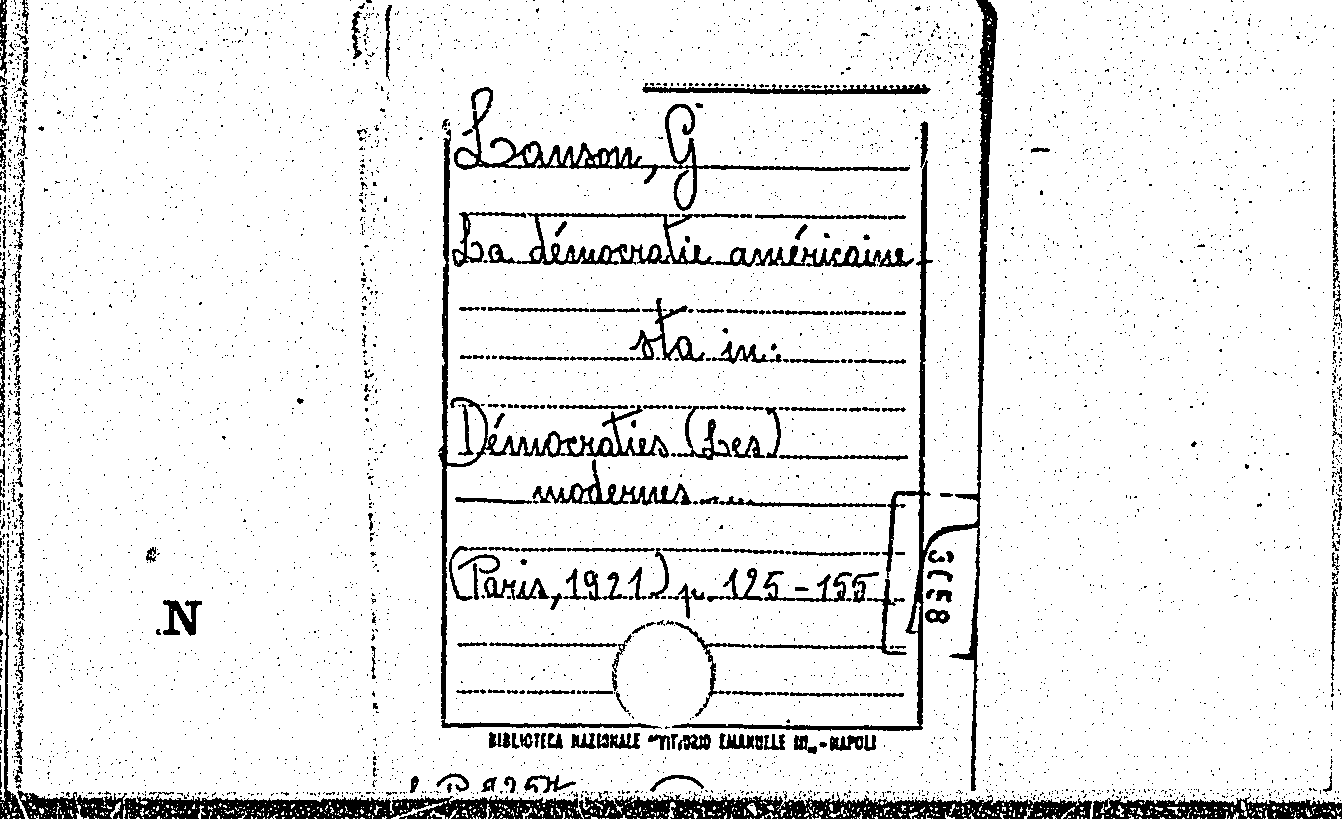 Lanson, G
La démocratie américaine.
sta in:
Démocraties (Les)
modernes....
(Paris, 1921) p. 125-155
BIBLIOTECA NAZIONALE "VITTORIO EMANUELE III" - NAPOLI
N